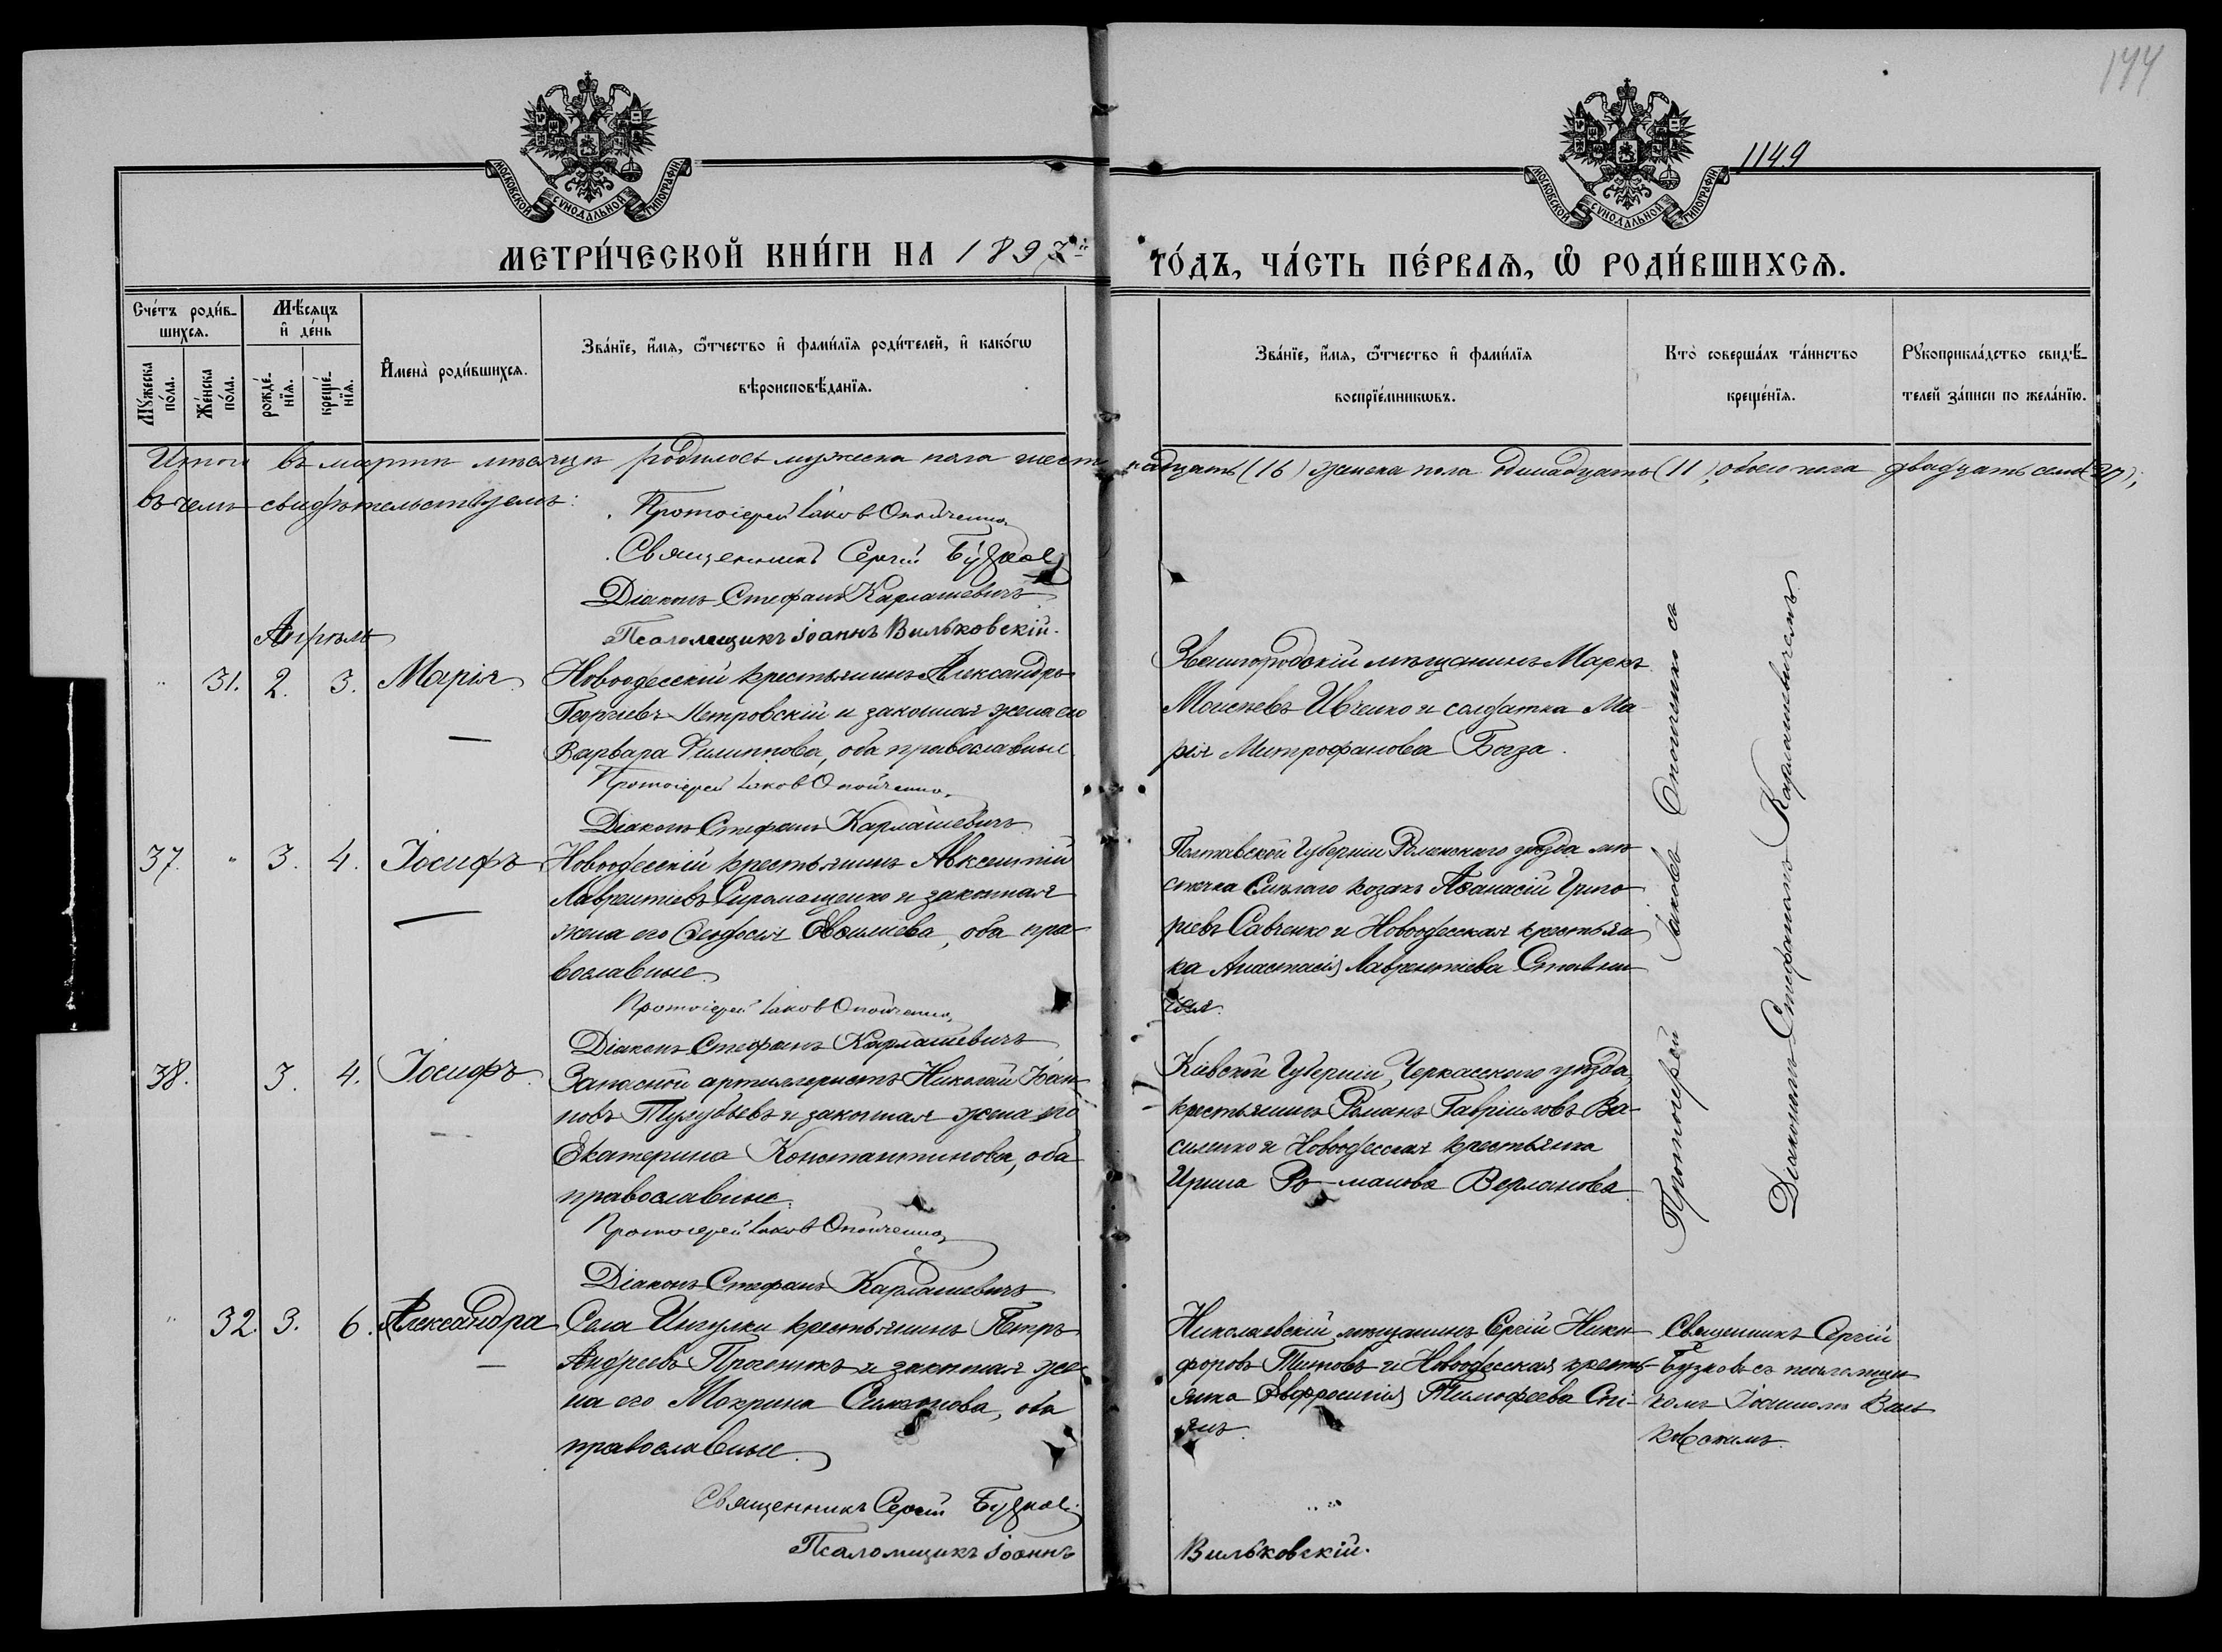 144
1149
МОСКОВСКОЙ СѴНОДАЛЬНОЙ ТИПОГРАФІИ
МОСКОВСКОЙ СѴНОДАЛЬНОЙ ТИПОГРАФІИ
МЕТРИ́ЧЕСКОЙ КНИ́ГИ НА 1897й ГО́ДЪ, ЧА́СТЬ ПЕ́РВАѦ, Ѡ РОДИ́ВШИХСѦ.
Сче́тъ роди́в-
шихсѧ.
Мꙋ́жеска по́ла.
Же́нска по́ла.
Мѣ́сѧцъ
и де́нь
рожде́-
нїѧ.
креще́-
нїѧ.
И҆мена̀ роди́вшихсѧ.
Зва́нїе, и҆́мѧ, ѻ҆́тчество и҆ фами́лїѧ роди́телей, и҆ како́гѡ
вѣроисповѣ́данїѧ.
Зва́нїе, и҆́мѧ, ѻ҆́тчество и҆ фами́лїѧ
воспрїе́мникѡвъ.
Кто̀ соверша́лъ та́инство
креще́нїѧ.
Рꙋкоприкла́дство свидѣ́-
телей за́писи по жела́нїю.
Итого въ мартѣ мѣсяцѣ родилось мужеска пола шестнадцать (16) женска пола одинадцать (11), обоего пола двадцать семь (27);
въ чемъ свидѣтельствуемъ:
Протоіерей Іаковъ Опойченко
Священникъ Сергій Бузков
Діаконъ Стефанъ Карлашевичъ
Псаломщикъ Іоаннъ Вильковскій.
Апрѣль
" 31. 2. 3. Марія
Новоодесскій крестьянинъ Александръ
Георгіевъ Петровскій и законная жена его
Варвара Филиппова, оба православные
Протоіерей Іаков Опойченко
Діаконъ Стефанъ Карлашевичъ
Звенигородскій мѣщанинъ Маркъ
Моисеевъ Ивченко и солдатка Ма-
рія Митрофанова Боза.
Протоіерей Іаковъ Опойченко съ
Діакономъ Стефаномъ Карлашевичемъ
37. " 3. 4. Іосифъ
Новоодесскій крестьянинъ Авксентій
Лаврентіевъ Сиромащенко и законная
жена его Ѳеодосія Евѳиміева, оба пра-
вославные
Протоіерей Іаков Опойченко
Діаконъ Стефанъ Карлашевичъ
Полтавской Губерніи Роменскаго уѣзда мѣ
стечка Смѣлаго козакъ Аѳанасій Григо
ріевъ Савченко и Новоодесская крестьян
ка Анастасія Лаврентіева Ставни
чая.
38. 3. 4. Іосифъ
Запасной артиллеристъ Николай Іоан
новъ Тулубьевъ и законная жена его
Екатерина Константинова, оба
православные.
Протоіерей Іаков Опойченко
Діаконъ Стефанъ Карлашевичъ
Кіевской Губерніи, Черкасскаго уѣзда,
крестьянинъ Романъ Гавріиловъ Ва-
силенко и Новоодесская крестьянка
Ирина Романова Верланова
" 32. 3. 6. Александра
Села Ингулки крестьянинъ Петръ
Андреевъ Прогонюкъ и законная же
на его Мокрина Симонова, оба
православные.
Священникъ Сергій Бузков.
Псаломщикъ Іоаннъ
Вильковскій.
Николаевскій мѣщанинъ Сергій Ники
форовъ Титовъ и Новоодесская кресть-
янка Евфросинія Тимофеева Сти-
Священникъ Сергій
Бузковъ съ псаломщи
комъ Іоанномъ Виль
ковскимъ.